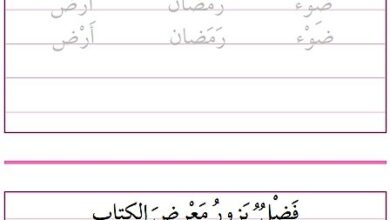 ضَوْء رَمَضان أَرْض
ضَوْء رَمَضان أَرْض
فَضْلٌ يَزورُ مَعْرِضَ الكِتابِ